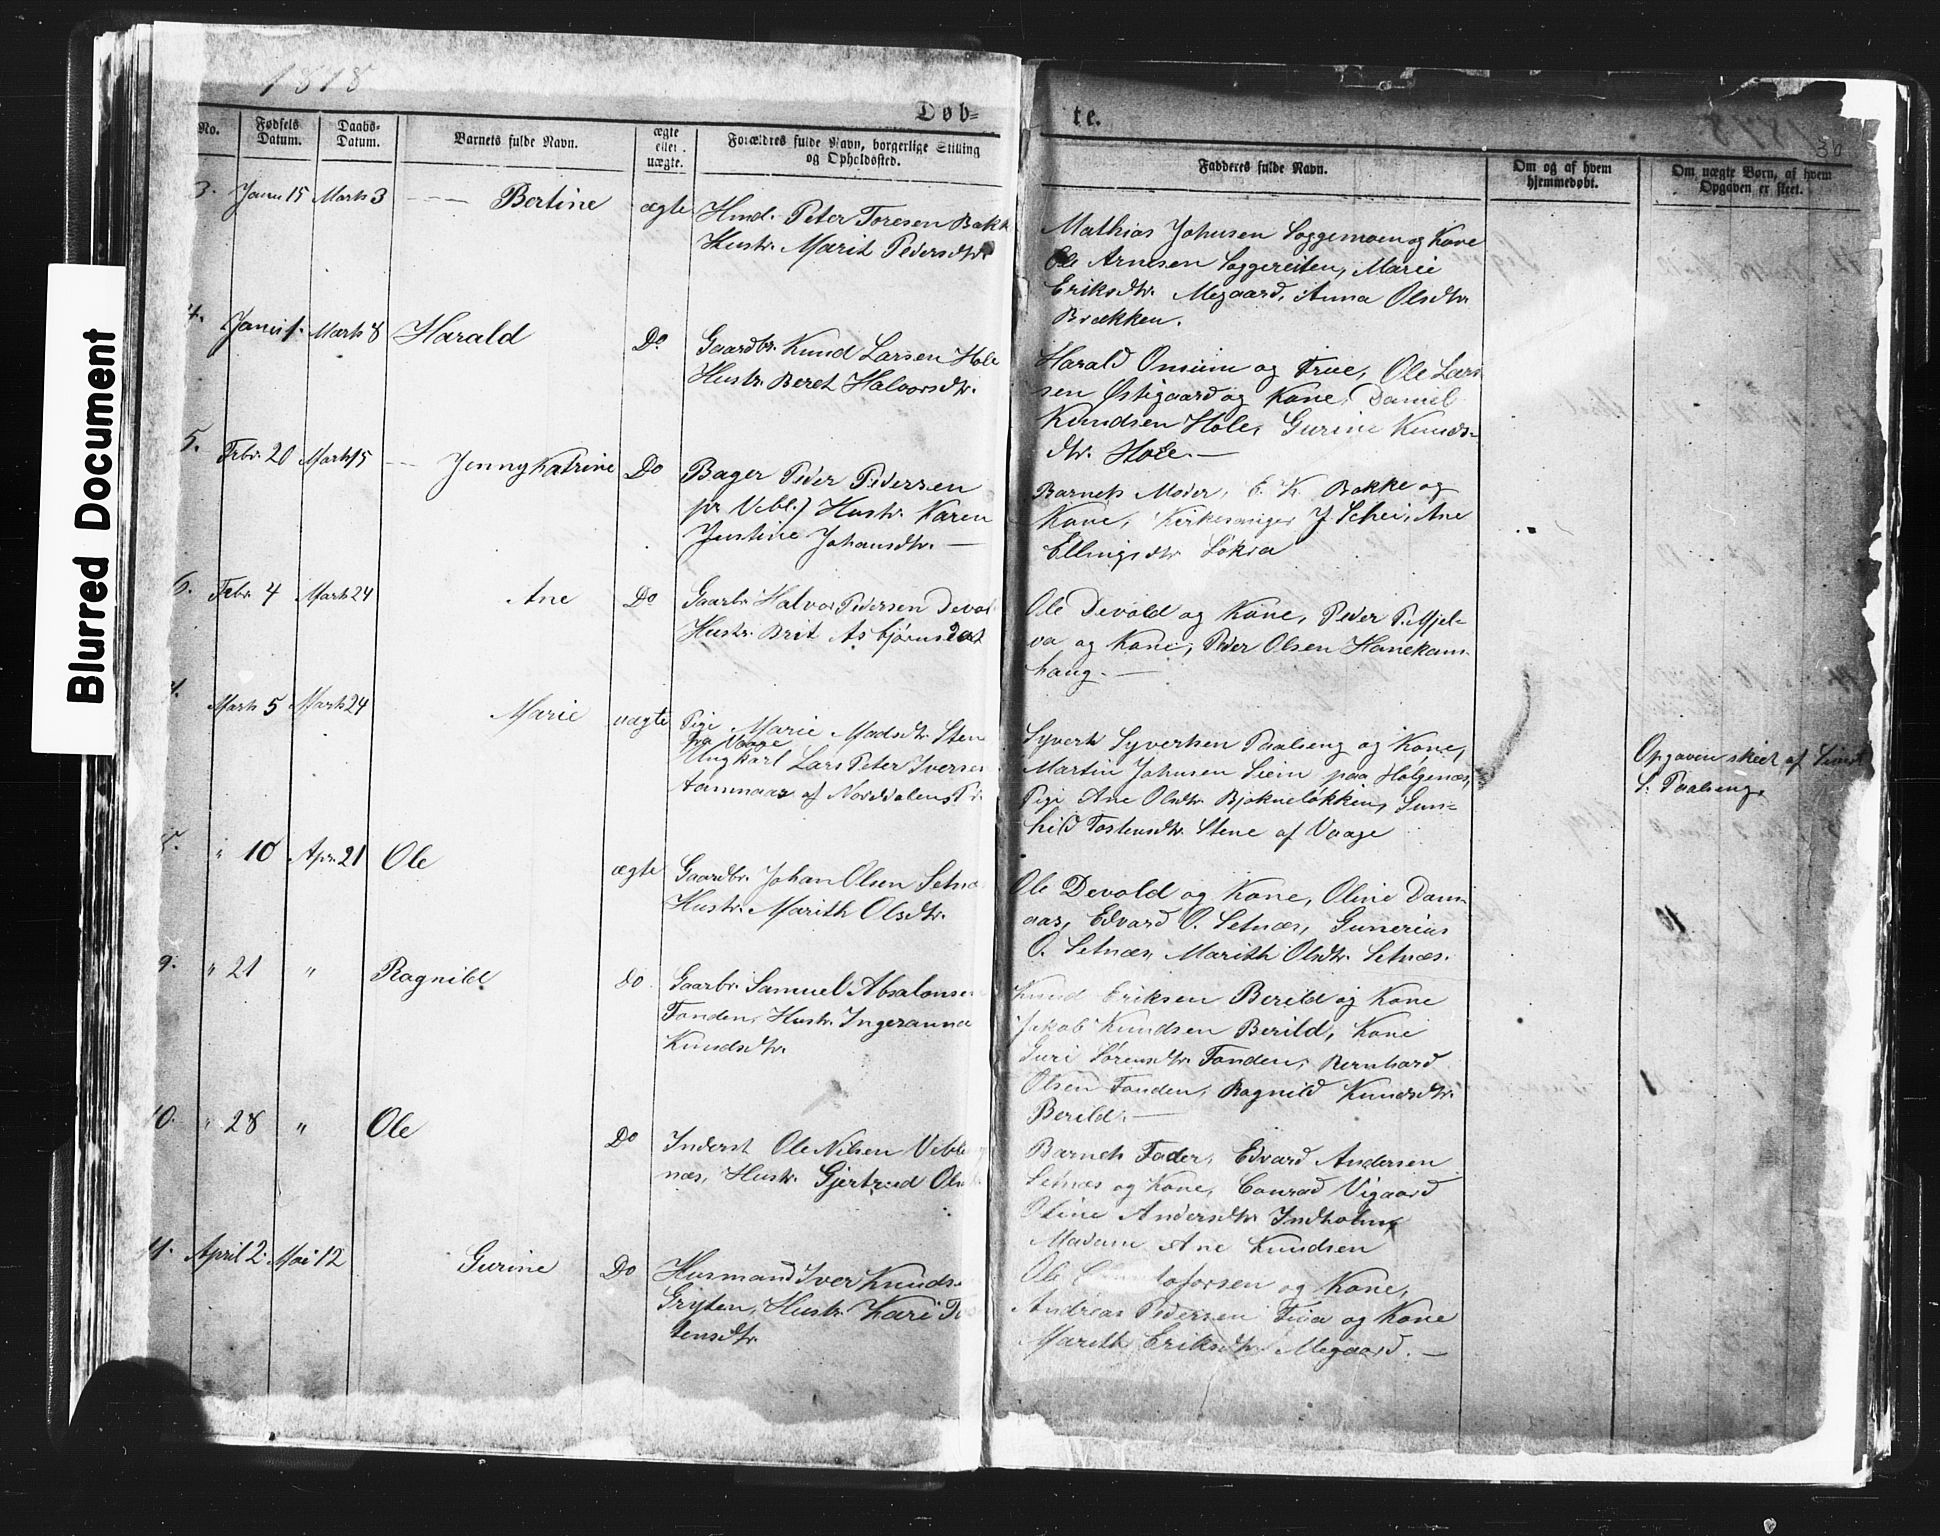 Blurred Document
1878
Døb-
No.
Fødsels Datum.
Daabs-Datum.
Barnets fulde Navn.
ægte eller uægte.
Forældres fulde Navn, borgerlige Stilling og Opholdssted.
3. Janu 15 Marts 3 Bertine ægte Hmd. Peter Toresen Bakk
Hustr. Marit Pedersdtr.
4. Marts 8 Harald Do Gaardbr. Knud Larsen Hole
Hustr. Beret Halvorsdtr.
5. Febr. 20 Marts 15 Jenny Katrine Do Bager Peder Pedersen
pr Vebl.) Hustr. Karen
Justine Johansdtr. —
6. Febr. 4 Marts 24 Ane Do Gaarbr. Halvor Pedersen Devol
Hustr. Brit Asbjørnsdat
Marts 5 Marts 24 Marie uægte Pige Marie Madsdtr. Sten
fra Vaage
Ungkarl Lars Peter Iversen
af Norddalens Pr.
" 10 Apr. 21 Ole ægte Gaardbr. Johan Olsen Setnæ
Hustr. Marith Olsdtr.
9. " 21 " Ragnild do Gaarbr. Samuel Absalonsen
Tonden, Hustr. Ingeranna
Knudsdtr.
10. " 28 " Ole Do Inderst Ole Nilsen Veblu
næs, Hustr. Gjertrud Ols
11. April 2. Mai 12 Gurine Do Husmand Iver Knuds
Gryten, Hustr. Kari To
stensdtr.
te.
1878
30
Fadderes fulde Navn.
Om og af hvem hjemmedøbt.
Om uægte Børn, af hvem Opgaven er skeet.
Mathias Johnsen Soggemoen og Kone
Ole Arnesen Soggereiten, Marie
Eriksdtr. Megaard, Anna Olsdtr.
Brækken.
Harald Onsum og Frue, Ole Lar
sen Østigaard og Kone, Daniel
Knudsen Hole, Gurine Knuds-
dtr. Hole. —
Barnets Moder, E. K. Bakke og
Kone, Kirkesanger J. Schei, Ane
Ellingsdtr.
Ole Devold og Kone, Peder P. Mjel-
va og Kone, Peder Olsen Hanekam-
haug. —
Syvert Syvertsen Paalseng og Kone,
Martin Johnsen Siem paa Holgenæs,
Pige Ane Olsdtr. Bjokneløkken, Gun-
hild Tostensdtr. Stene af Vaage
Opgaven skeet af
S. Paalseng
Ole Devold og Kone, Oline Dam-
aas, Edvard O. Setnæs, Gunerius
O. Setnæs, Marith Olsdtr. Setnæs.
Knud Eriksen Berild og Kone
Jakob Knudsen Berild, Kone
Guri Sørensdtr. Tonden, Bernhard
Olsen Tonden, Ragnild Knudsdtr.
Berild. —
Barnets Fader, Edvard Andersen
Setnæs og Kone, Conrad Vigaard
Oline Andersdtr. Indholm
Madam Ane Knudsen
Ole og Kone,
Andreas Pedersen Fiva og Kone
Marith Eriksdtr. Megaard. —